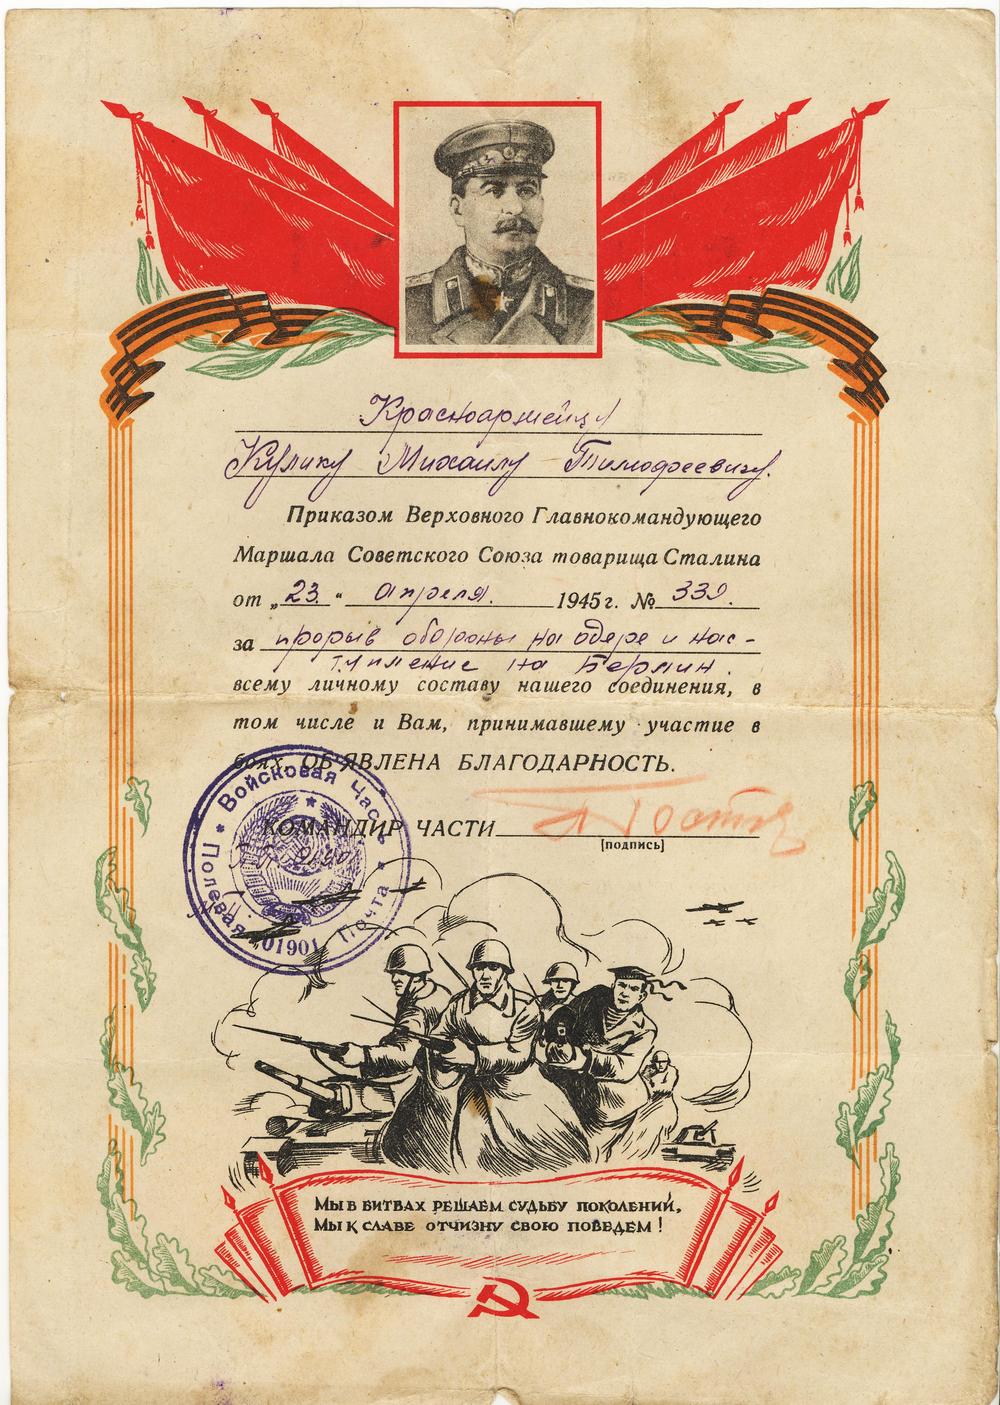 Красноармейцу
Кулику Михаилу Тимофеевичу.
Приказом Верховного Главнокомандующего
Маршала Советского Союза товарища Сталина
от „23." апреля. 1945 г. № 339.
за прорыв обороны на одере и нас-
тупление на Берлин.
всему личному составу нашего соединения, в
том числе и Вам, принимавшему участие в
боях, ОБ'ЯВЛЕНА БЛАГОДАРНОСТЬ.
Войсковая Часть
Полевая Почта
01901
КОМАНДИР ЧАСТИ
[подпись]
МЫ В БИТВАХ РЕШАЕМ СУДЬБУ ПОКОЛЕНИЙ,
МЫ К СЛАВЕ ОТЧИЗНУ СВОЮ ПОВЕДЕМ!